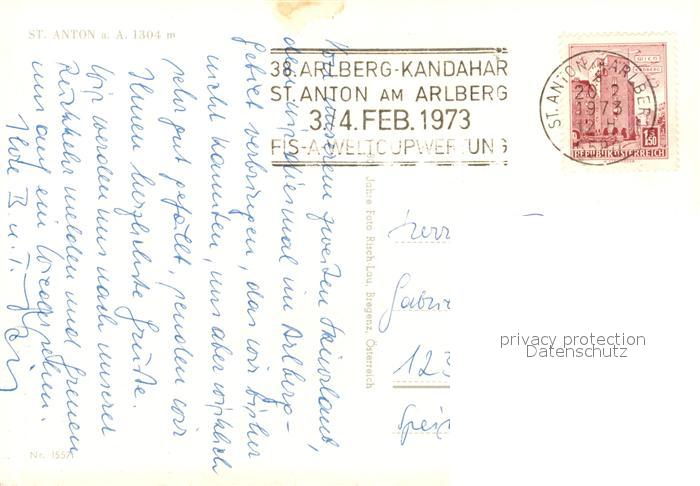 ST. ANTON a. A. 1304 m
38. ARLBERG-KANDAHAR
ST. ANTON AM ARLBERG
3./4. FEB. 1973
FIS-A-WELTCUPWERTUNG
ST. ANTON ARLBERG
20.2.
1973
WIEN
1.50
REPUBLIK ÖSTERREICH
Von unserem zweiten Skiurlaub,
den wir diesmal im Arlberg-
Gebiet verbringen, das wir bisher
nicht kannten, uns aber wirklich
sehr gut gefällt, senden wir
Ihnen herzlichste Grüße.
Wir werden uns nach unserer
Rückkehr melden und freuen
uns auf ein Wiedersehen.
Ihre B. u.
Jahre Foto Risch-Lau, Bregenz, Österreich
Herr
Gabri
123
Spei
privacy protection
Datenschutz
Nr. 15571